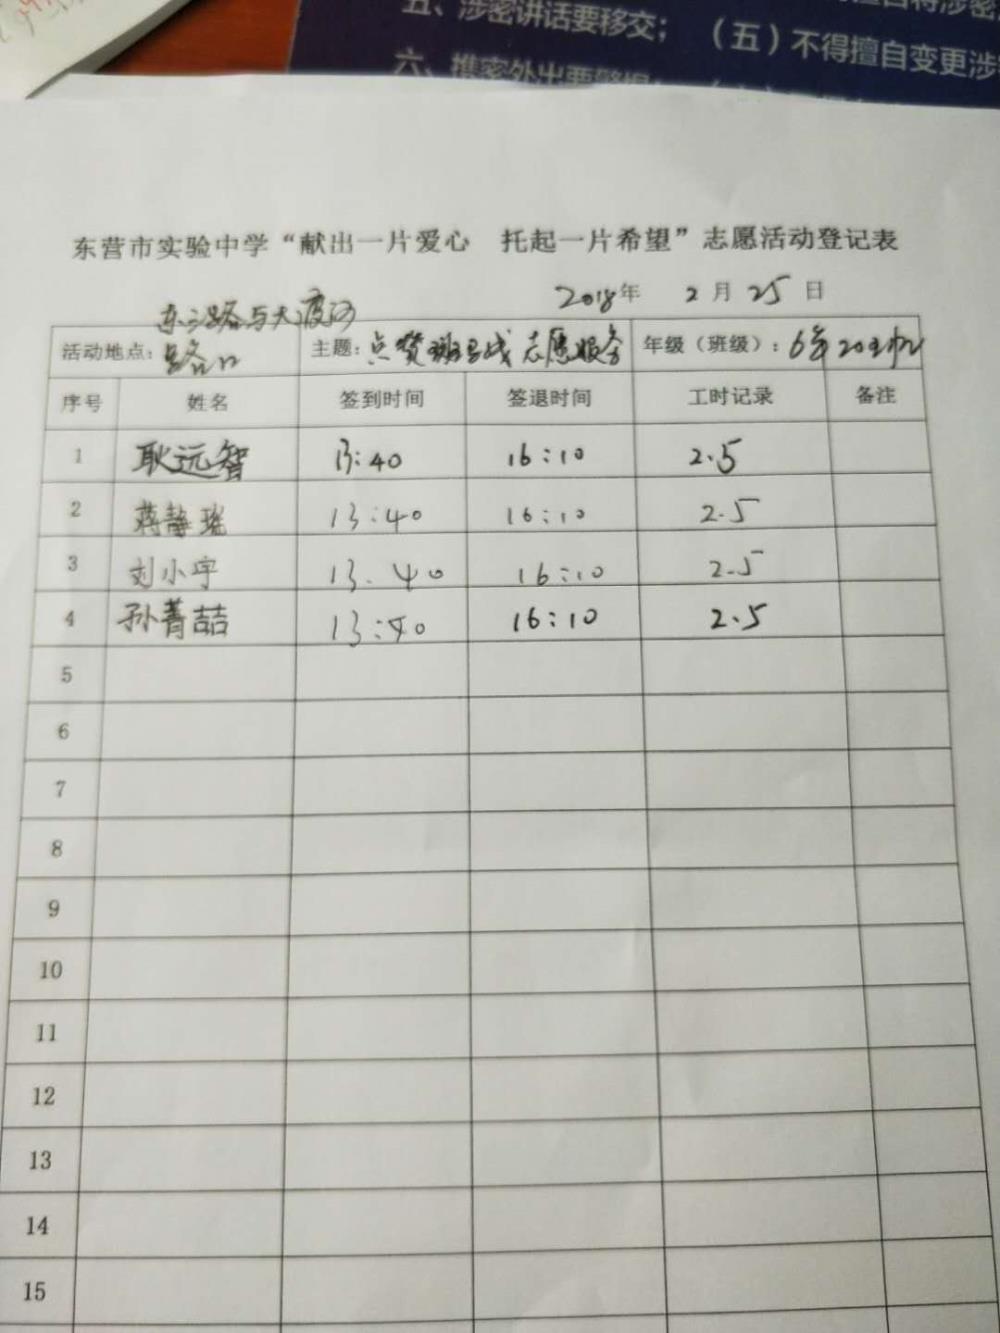 五、涉密讲话要移交;
(五)不得擅自变更涉
六、携密外出要
东营市实验中学“献出一片爱心 托起一片希望”志愿活动登记表
2018年 2月25日
东三路与大渡河
活动地点: 路口 主题: 点赞 志愿服务 年级(班级): 6年20
序号 姓名 签到时间 签退时间 工时记录 备注
1 耿远智 13:40 16:10 2.5
2 蒋静瑶 13:40 16:10 2.5
3 刘小宇 13.40 16:10 2.5
4 孙菁喆 13:40 16:10 2.5
5
6
7
8
9
10
11
12
13
14
15